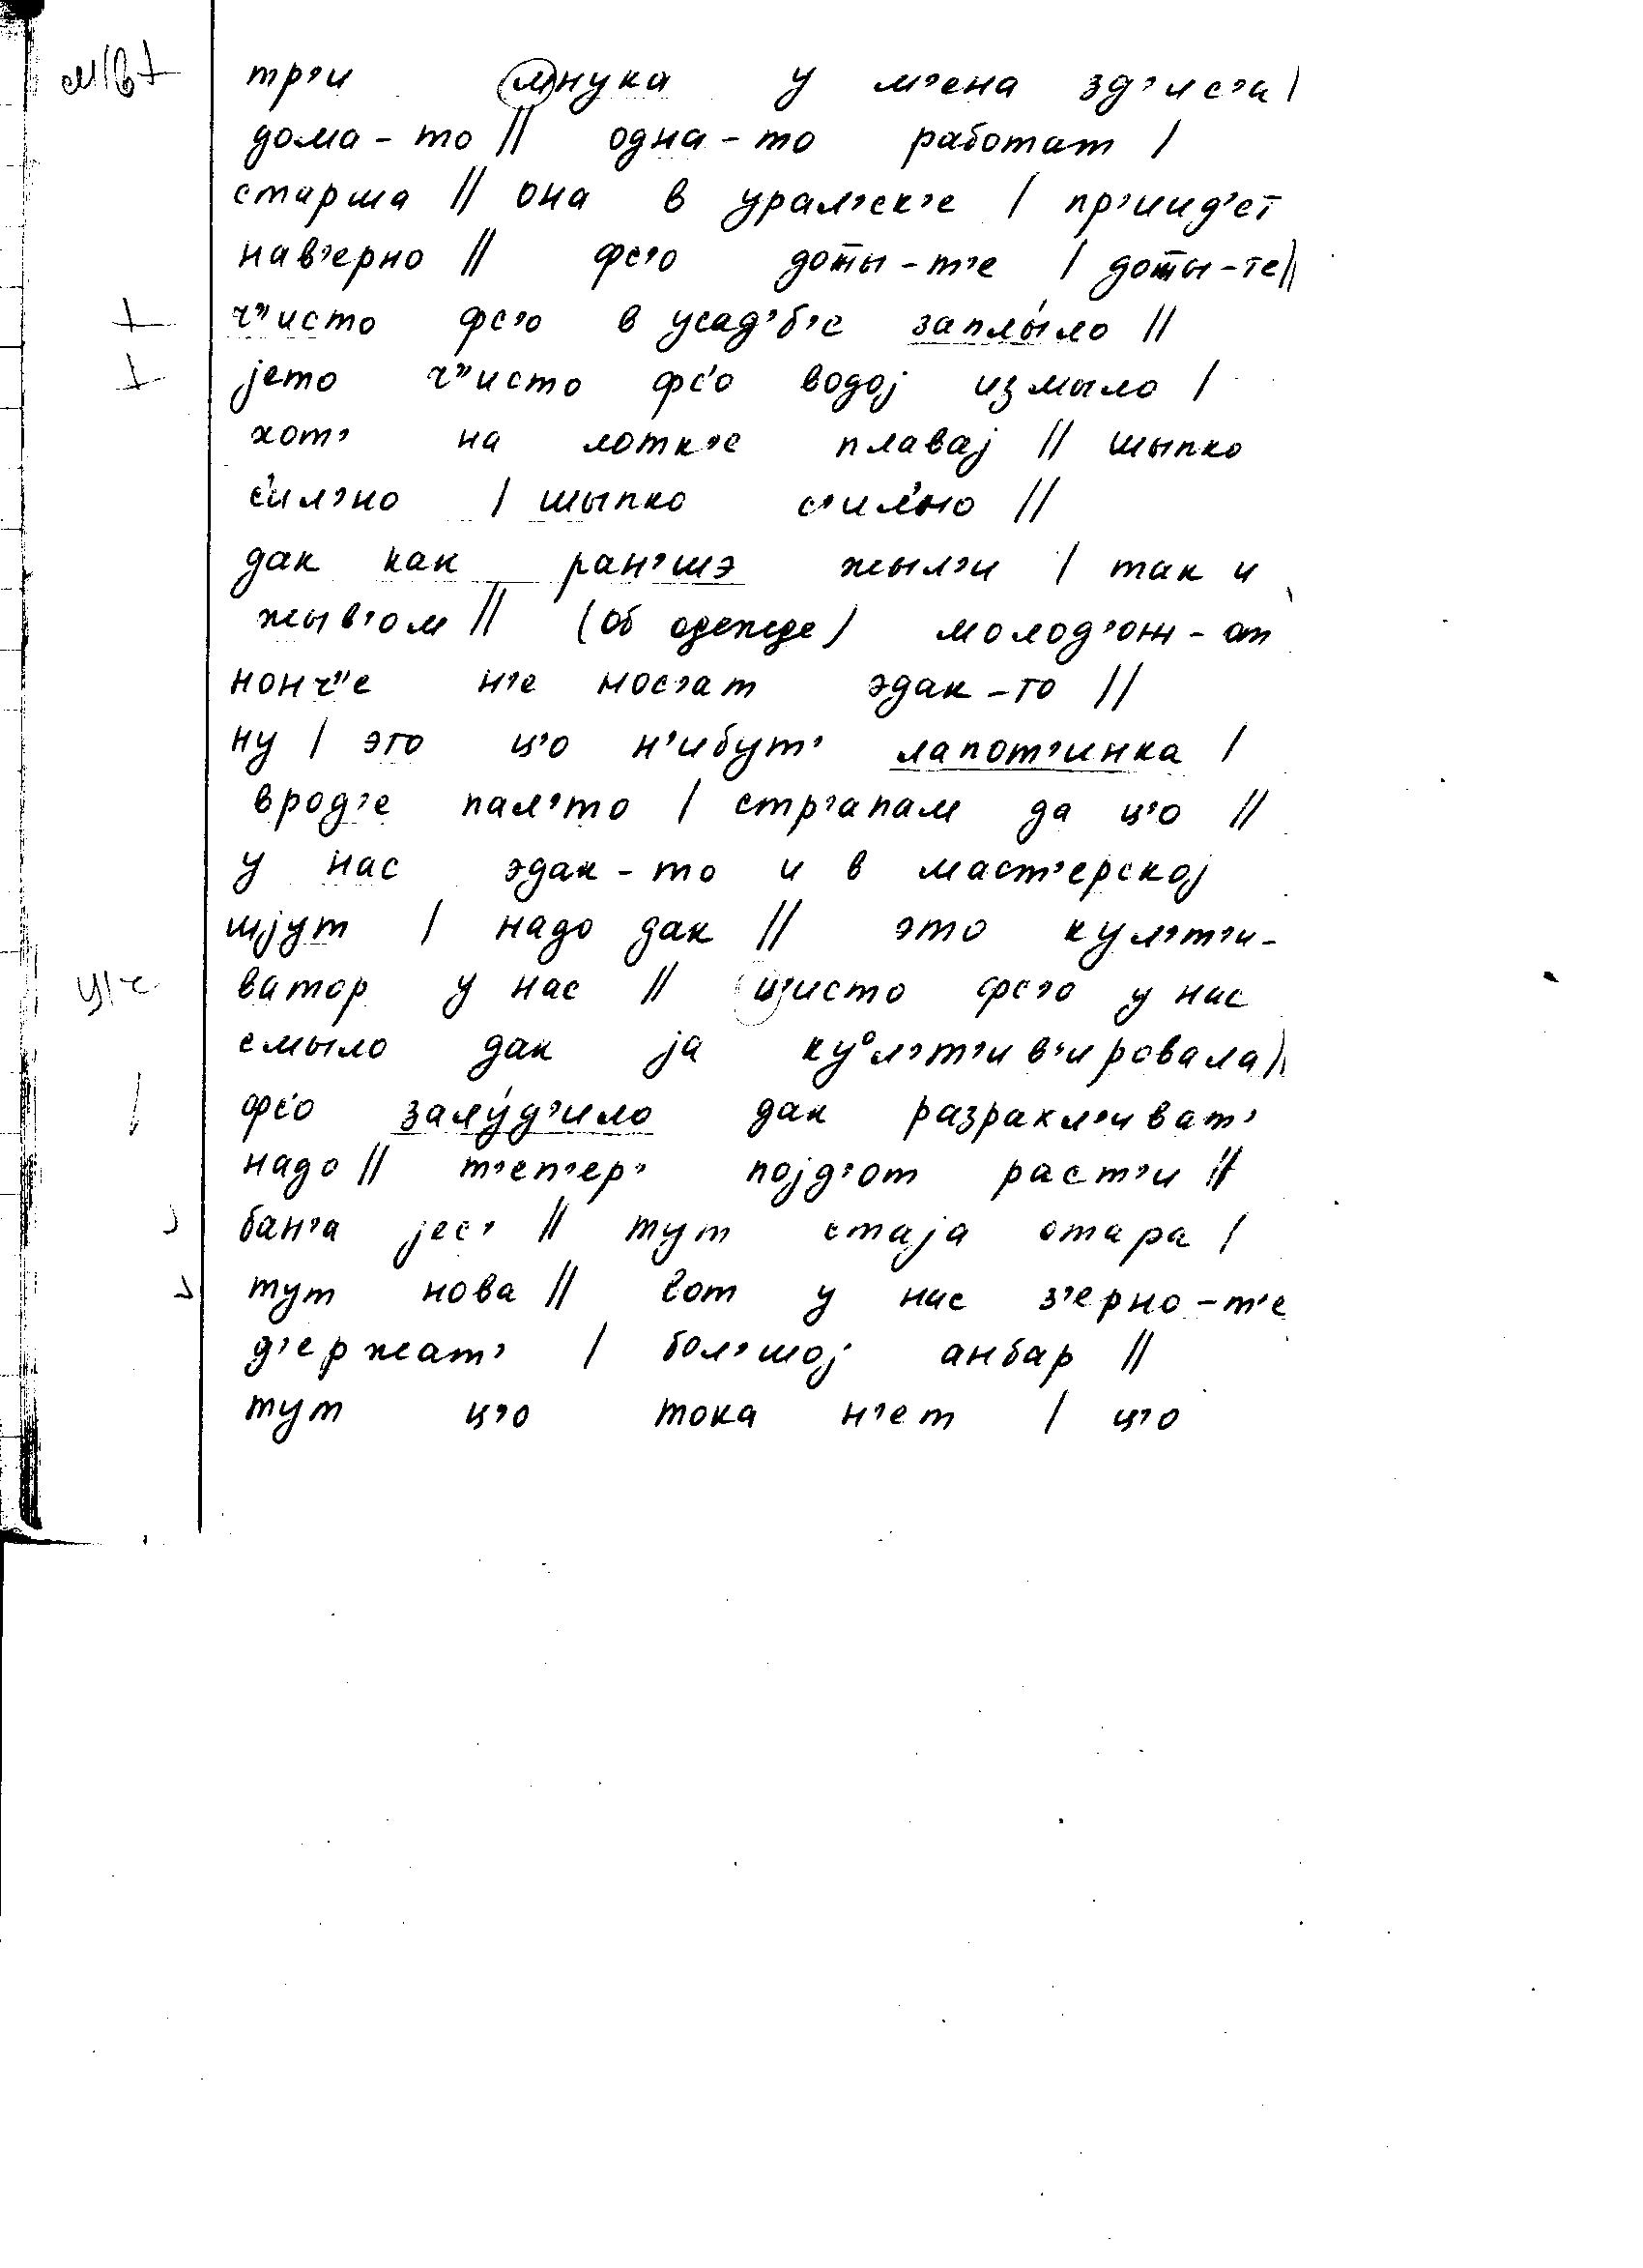 м/в +
тр'и мнука у м'ена зд'ис'а /
дома-то // одна-то работат /
старша // она в урал'ск'е / пр'иид'ет
нав'ерно // фс'о доты-т'е / доты-те //
ч"исто фс'о в усад'б'е заплы́ло //
jето ч"исто фс'о водоj измыло /
хот' на лотк'е плаваj // шыпко
с'ил'но / шыпко с'ил'но //
дак как ран'шэ жыл'и / так и
жыв'ом // (об одежде) молод'ож-от
нонч"е н'е нос'ат эдак-то //
ну / это ц'о н'ибут' лапот'инка /
врод'е пал'то / стр'апам да ц'о //
у нас эдак-то и в маст'ерскоj
шjут / надо дак // это кул'т'и-
ватор у нас // ц'исто фс'о у нас
смыло дак jа ку°л'т'ив'ировала //
фс'о залу́д'ило дак разрахл'иват'
надо // т'еп'ер' поjд'от раст'и //
бан'а jес' // тут стаjа стара /
тут нова // вот у нас з'ерно-т'е
д'ержат' / бол'шоj анбар //
тут ц'о тока н'ет / ц'о